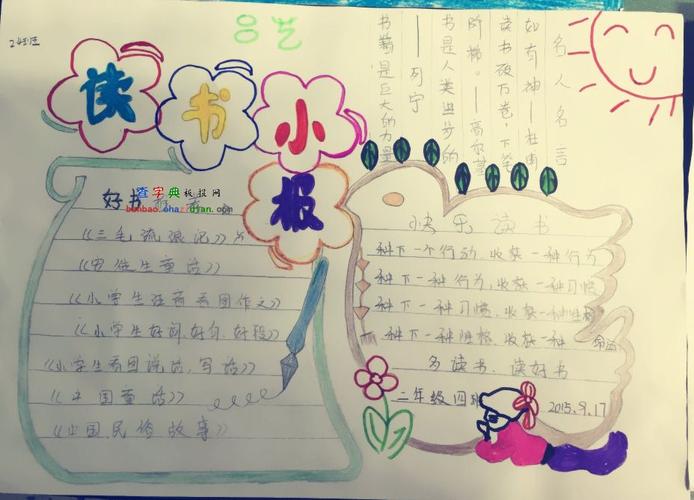 吕艺
读书小报
名人名言
书籍是巨大的力量
——列宁
书是人类进步的
阶梯。——高尔基
读书破万卷,下笔
如有神——杜甫
好书
查字典板报网
banbao.chazidian.com
《三毛流浪记》
《安徒生童话》
《小学生注音看图作文》
《小学生好词、好句、好段》
《小学生看图说话,写话》
《中国童话》
《中国民俗故事》
快乐读书
种下一个行动,收获一种行为
种下一种行为,收获一种习惯
种下一种习惯,收获一种性格
种下一种性格,收获一种命运
多读书、读好书
二年级四班
2015.9.17